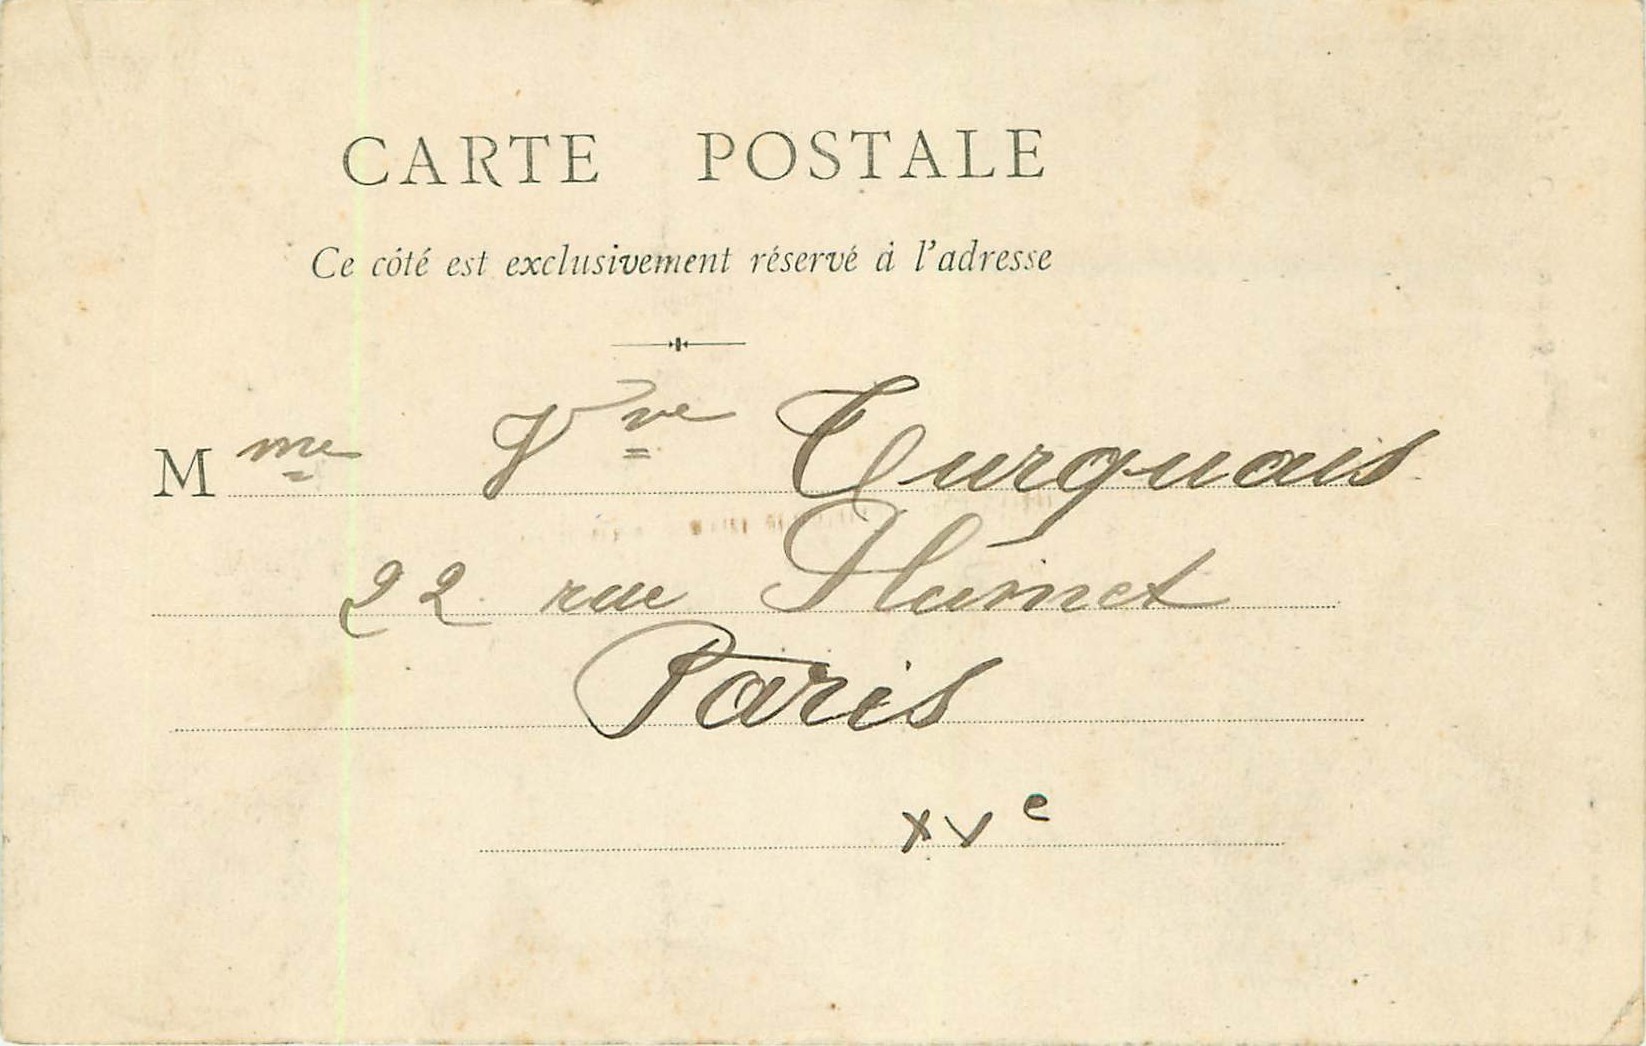 CARTE POSTALE
Ce côté est exclusivement réservé à l'adresse
Mme Vve Turquais
22 rue Plumet
Paris
XVe